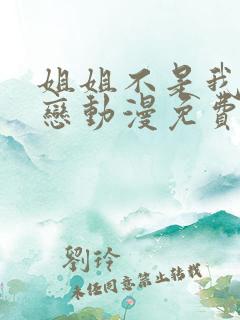 姐姐不是我
戀動漫免費
劉玲
未經同意禁止轉載